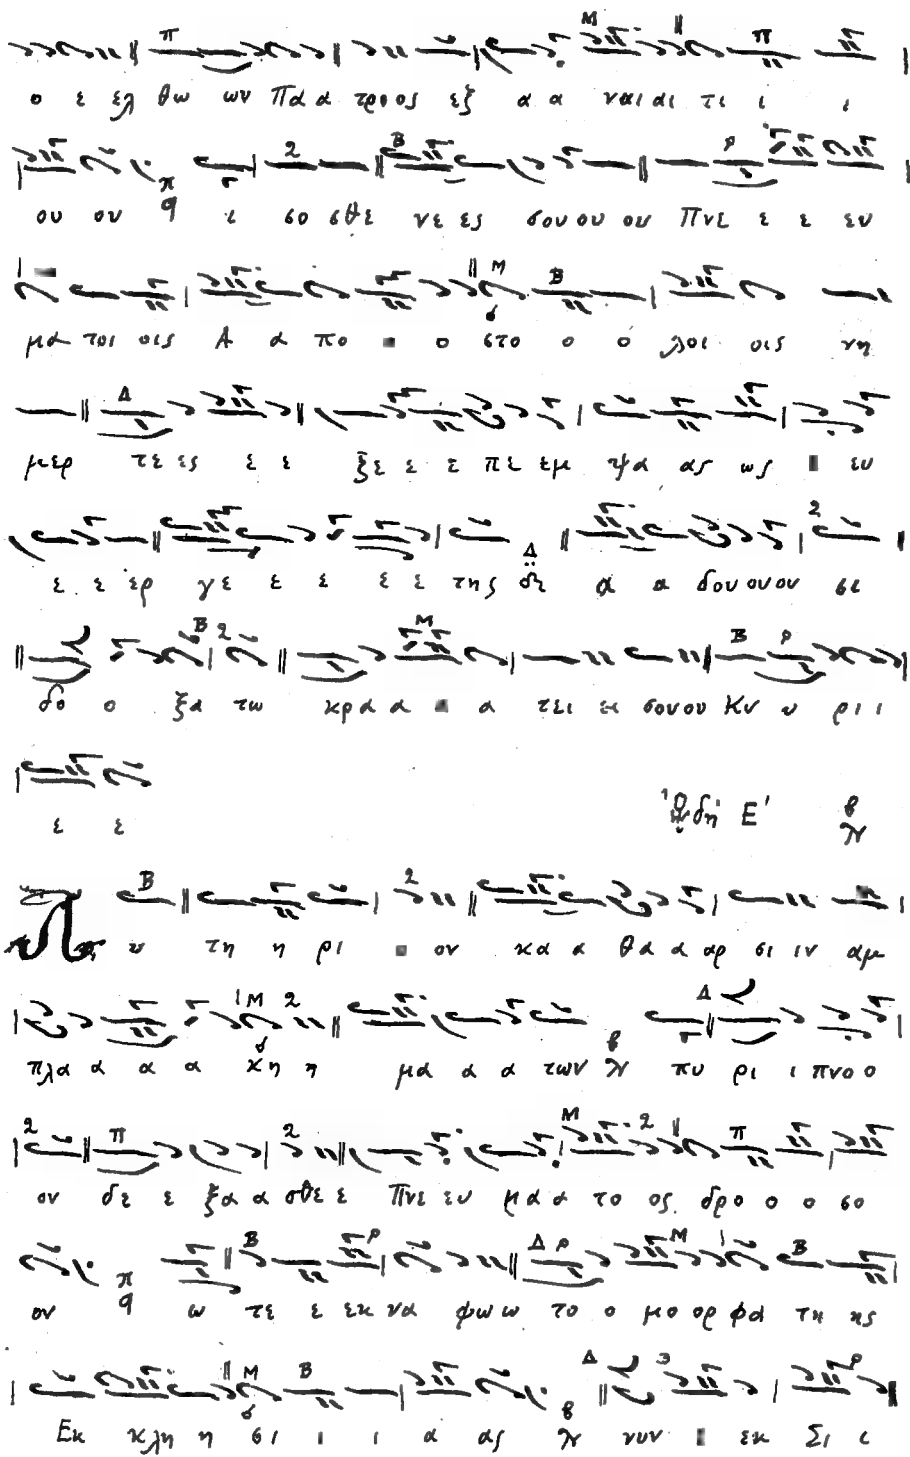 ο ε ελ θω ων Πα α τρο ος εξ α α ναι αι τι ι ι
ου ον ι σο σθε νε ες σου ου ου Πνε ε ε ευ
μα τοι οις Α α πο ο ο στο ο ο λοι οις νη
μερ τε ες ε ε ξε ε ε πε εμ ψα ας ως ευ
ε ε ερ γε ε ε ε ε της δε α α δου ου ου σι
δο ο ξα τω κρα α α α τει ει σου ου Κυ υ ρι ι
ε ε Ὠδή Ε'
Λυ υ τη η ρι ον κα α θα α αρ σι ιν αμ
πλα α α α κη η μα α α των πυ ρι ι πνο ο
ον δε ε ξα α σθε ε Πνε ευ μα α το ος δρο ο ο σο
ον ω τε ε εκ να ψω ω το ο μο ορ φα τη ης
Εκ κλη η σι ι ι α ας νυν εκ Σι ι